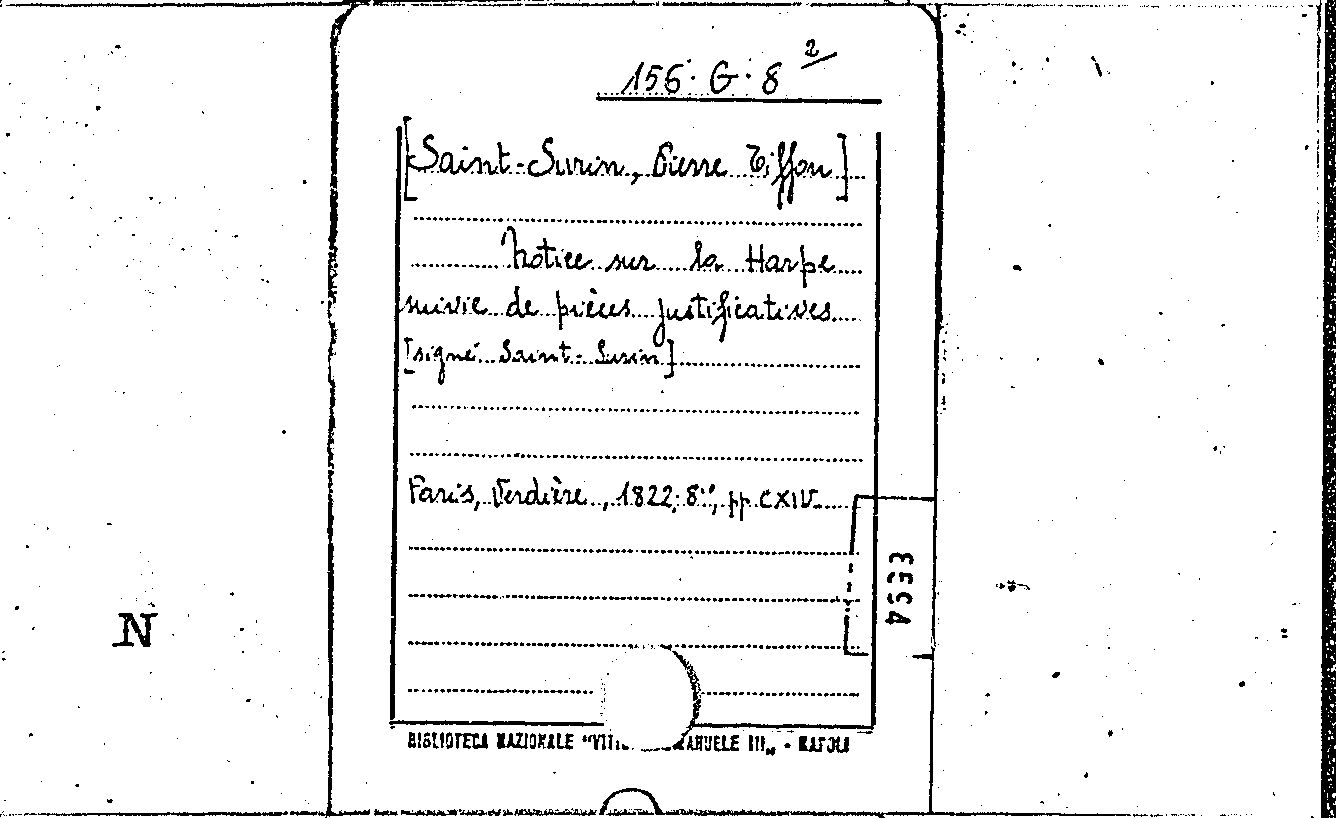 156. G. 8 2
[Saint-Surin, Pierre Tiffon]
Notice sur la Harpe
suivie de pièces justificatives
[signé Saint-Surin]
Paris, Verdière, 1822; 8°, pp. CXIV
4553
N
BIBLIOTECA NAZIONALE "VITT MANUELE III„ - NAPOLI